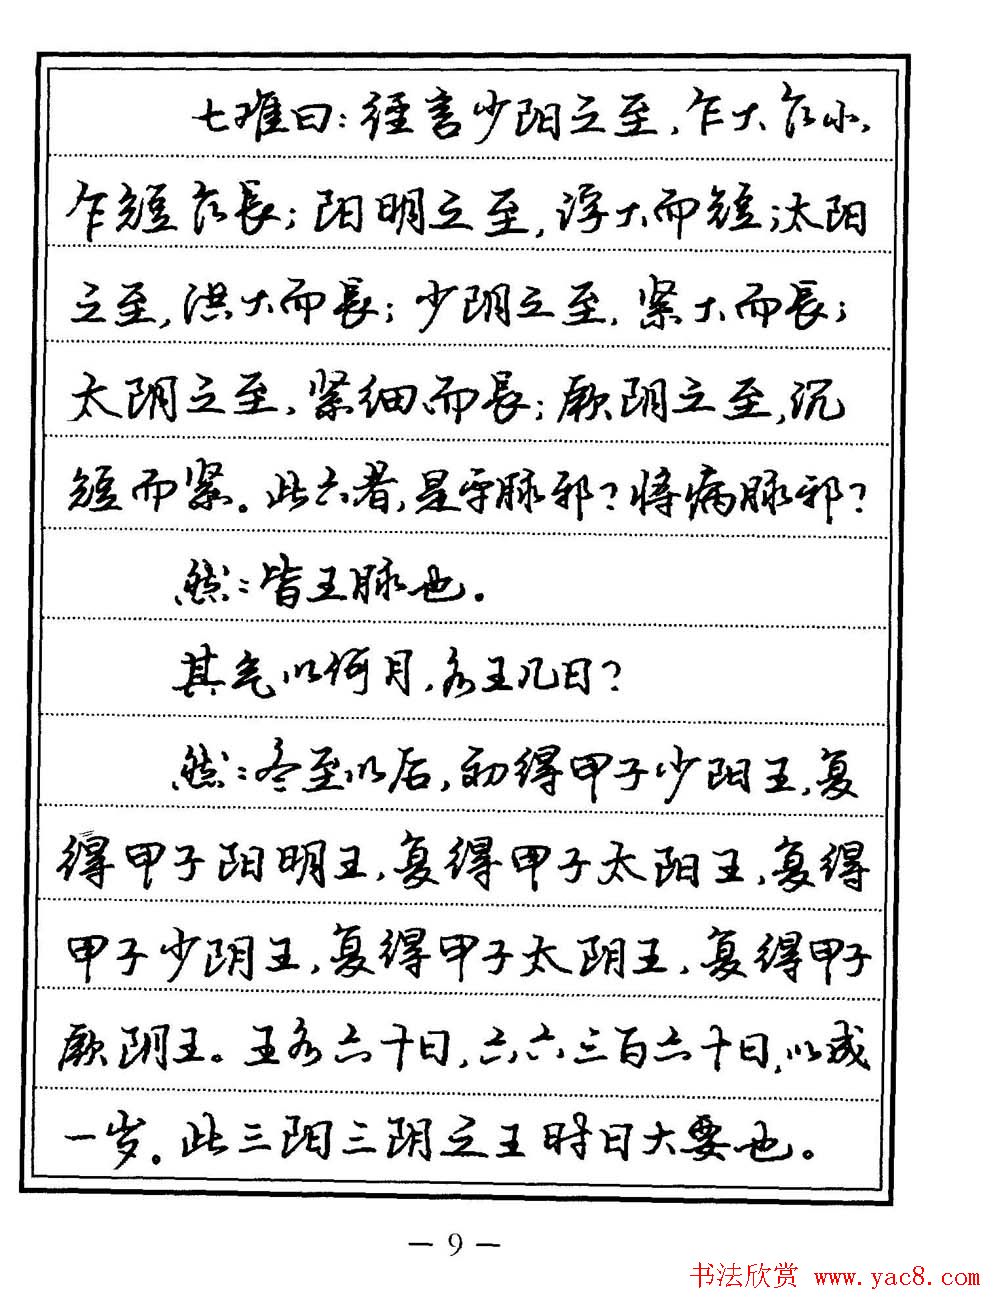 七难曰：経言少阳之至，乍大乍小，
乍短乍長；阳明之至，浮大而短；太阳
之至，洪大而長；少阴之至，紧大而長；
太阴之至，紧细而長；厥阴之至，沉
短而紧。此六者，是平脉邪？将病脉邪？
然：皆王脉也。
其气以何月，各王几日？
然：冬至以后，初得甲子少阳王，复
得甲子阳明王，复得甲子太阳王，复得
甲子少阴王，复得甲子太阴王，复得甲子
厥阴王。王各六十日，六六三百六十日，以成
一岁。此三阳三阴之王时日大要也。
— 9 —
书法欣赏 www.yac8.com